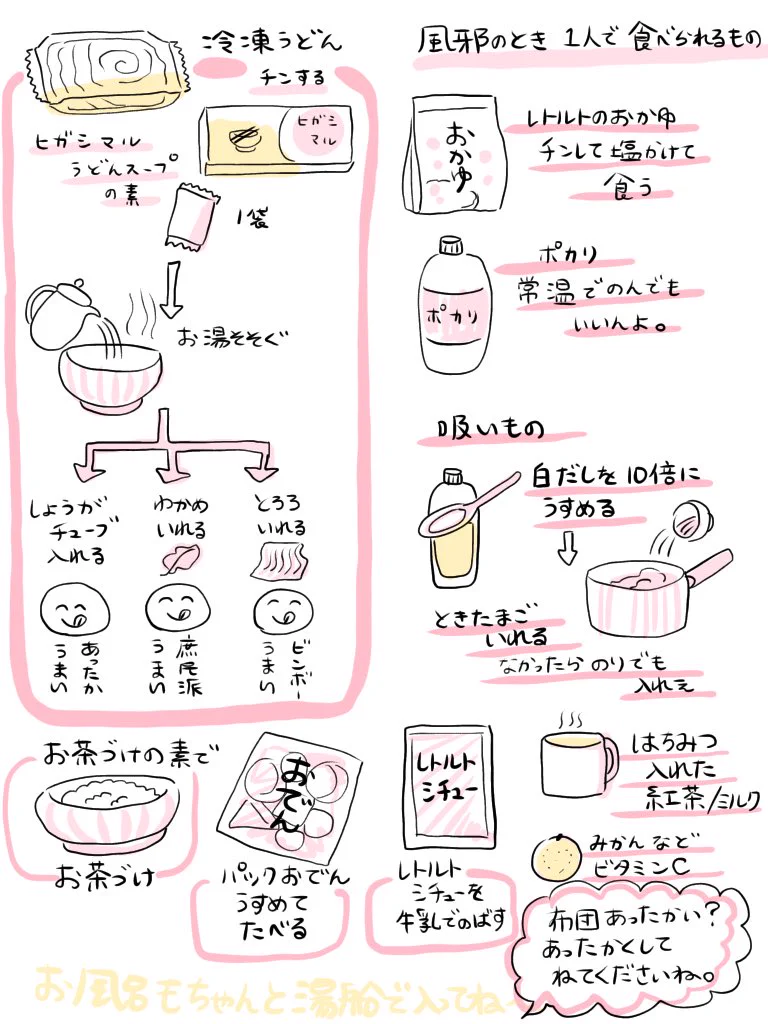 風邪のとき 1人で 食べられるもの
冷凍うどん
チンする
ヒガシマル
うどんスープ
の素
ヒガシ
マル
1袋
お湯そそぐ
しょうが
チューブ
入れる
わかめ
いれる
とろろ
いれる
あったか
うまい
庶民派
うまい
ビンボー
うまい
おかゆ
レトルトのおかゆ
チンして塩かけて
食う
ポカリ
ポカリ
常温でのんでも
いいんよ。
吸いもの
白だしを10倍に
うすめる
ときたまご
いれる
なかったらのりでも
入れえ
お茶づけの素で
お茶づけ
おでん
パックおでん
うすめて
たべる
レトルト
シチュー
レトルト
シチューを
牛乳でのばす
はちみつ
入れた
紅茶/ミルク
みかんなど
ビタミンC
布団あったかい?
あったかくして
ねてくださいね。
お風呂もちゃんと湯船で入ってね